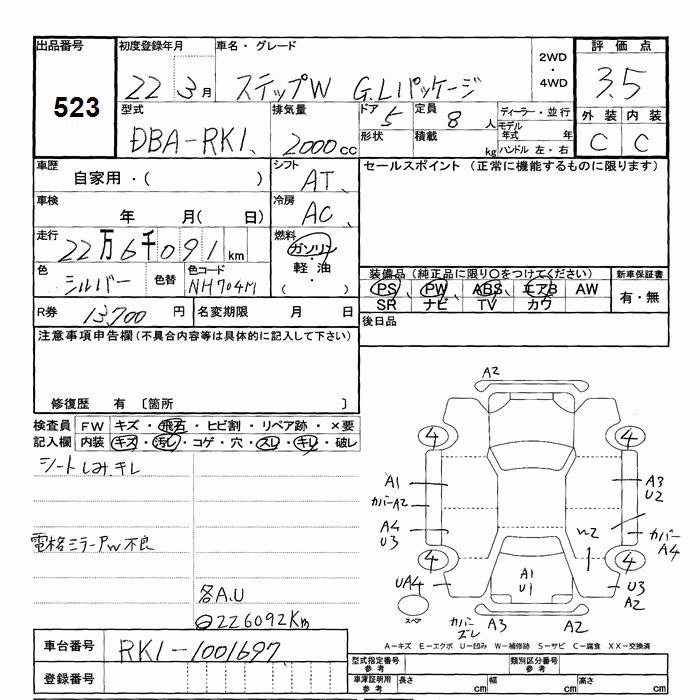 出品番号
523
初度登録年月
22 3月
車名・グレード
ステップW G.Lパッケージ
2WD
・
4WD
評価点
3.5
外装 内装
C C
型式
DBA-RK1
排気量
2000cc
ドア
5
定員
8人
形状
積載
kg
ディーラー・並行
モデル年式 年
ハンドル 左・右
車歴
自家用・( )
シフト
AT
セールスポイント (正常に機能するものに限ります)
車検
年 月( 日)
冷房
AC
走行
22万6千091km
燃料
ガソリン
・
軽油
・
( )
色
シルバー
色替
色コード
NH704M
装備品 (純正品に限り○をつけてください)
PS PW ABS エアB AW
SR ナビ TV カワ
新車保証書
有・無
R券
13,700円
名変期限 月 日
後日品
注意事項申告欄 (不具合内容等は具体的に記入して下さい)
修復歴 有 〔箇所 〕
検査員記入欄
FW キズ・飛石・ヒビ割・リペア跡・×要
内装 キズ・汚レ・コゲ・穴・スレ・キレ・破レ
シートしみ、キレ
電格ミラーPW不良
各A.U
226092Km
A2
4
4
A1
カバーA2
A4
U3
A3
U2
カバー
A4
4
4
UA4
A1
U1
U3
A2
スペア
カバー
ズレ
A3
A2
A-キズ E-エクボ U-凹み W-補修跡 S-サビ C-腐食 XX-交換済
車台番号
RK1-1001697
登録番号
型式指定番号
参考
類別区分番号
参考
車庫証明用
参考
長さ cm
幅 cm
高さ cm